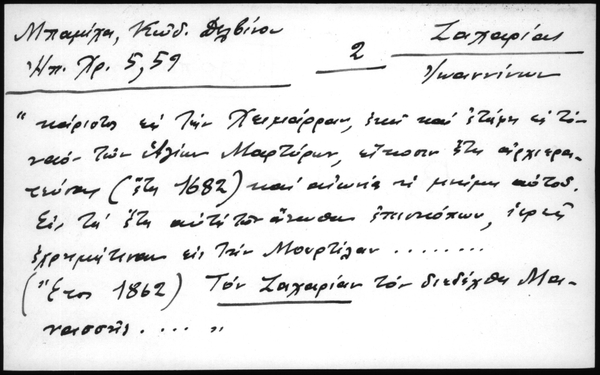 Μπαμίχα, Κώδ. Δελβίνου
Ἠπ. Χρ. 5, 59
2
Ζαχαρίας
Ἰωαννίνων
" κάριστος εἰς τὴν Χειμάρραν, ἐκεῖ καὶ ἐτάφη εἰς τὸν
ναὸν τῶν Ἁγίων Μαρτύρων, εἴκοσιν ἔτη ἀρχιερα-
τεύσας (ἔτη 1682) καὶ αἰωνία ἡ μνήμη αὐτοῦ.
Εἰς τὰ ἔτη αὐτὰ τῶν ἄνωθεν ἐπισκόπων, ἱερεῖς
ἐχρημάτισαν εἰς τὴν Μουρτζιὰν ........
(Ἔτος 1862) Τὸν Ζαχαρίαν τὸν διεδέχθη Μα-
νασσῆς ..... "